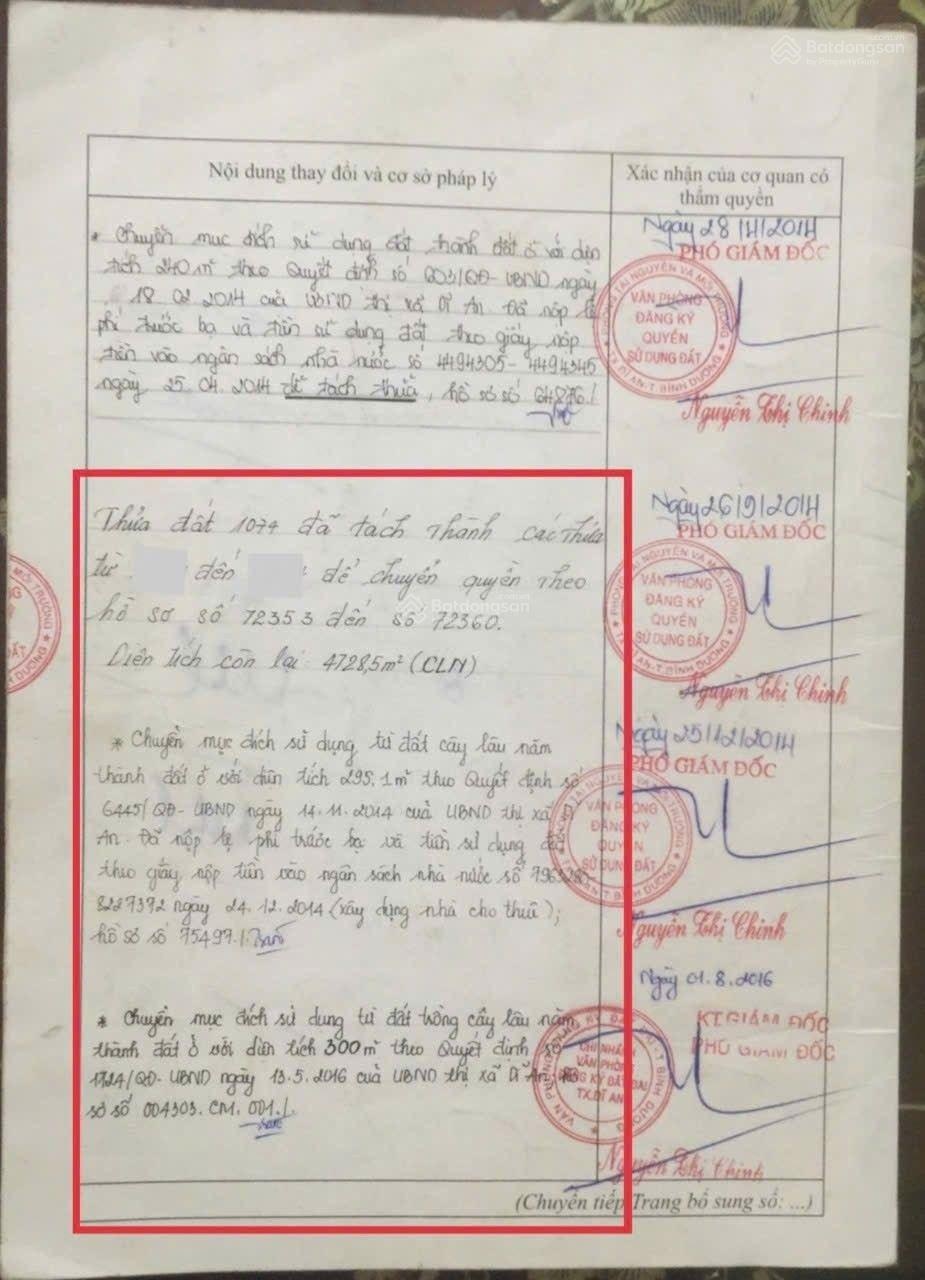 Batdongsan
by PropertyGuru
Nội dung thay đổi và cơ sở pháp lý
Xác nhận của cơ quan có
thẩm quyền
* Chuyển mục đích sử dụng đất thành đất ở với diện
tích 240 m² theo Quyết định số 903/QĐ-UBND ngày
18.02.2014 của UBND thị xã Dĩ An. Đã nộp lệ
phí trước bạ và tiền sử dụng đất theo giấy nộp
tiền vào ngân sách nhà nước số 4494305-4494345
ngày 25.04.2014 để tách thửa, hồ sơ số 64876./
Ngày 28/4/2014
PHÓ GIÁM ĐỐC
PHÒNG TÀI NGUYÊN VÀ MÔI TRƯỜNG
VĂN PHÒNG
ĐĂNG KÝ
QUYỀN
SỬ DỤNG ĐẤT
TX.DĨ AN-T.BÌNH DƯƠNG
Nguyễn Thị Chinh
Thửa đất 1074 đã tách thành các thửa
từ đến để chuyển quyền theo
hồ sơ số 72353 đến số 72360.
Diện tích còn lại: 4728,5m² (CLN)
Batdongsan
Ngày 26/9/2014
PHÓ GIÁM ĐỐC
PHÒNG TÀI NGUYÊN VÀ MÔI TRƯỜNG
VĂN PHÒNG
ĐĂNG KÝ
QUYỀN
SỬ DỤNG ĐẤT
TX.DĨ AN-T.BÌNH DƯƠNG
Nguyễn Thị Chinh
* Chuyển mục đích sử dụng từ đất cây lâu năm
thành đất ở với diện tích 295.1m² theo Quyết định số
6445/QĐ-UBND ngày 14.11.2014 của UBND thị xã
An. Đã nộp lệ phí trước bạ và tiền sử dụng đất
theo giấy nộp tiền vào ngân sách nhà nước số
8227372 ngày 24.12.2014 (xây dựng nhà cho thuê);
hồ sơ số 75497./.
Ngày 25/12/2014
PHÓ GIÁM ĐỐC
VĂN PHÒNG
ĐĂNG KÝ
QUYỀN
SỬ DỤNG ĐẤT
Nguyễn Thị Chinh
* Chuyển mục đích sử dụng từ đất trồng cây lâu năm
thành đất ở với diện tích 300m² theo Quyết định số
1724/QĐ-UBND ngày 13.5.2016 của UBND thị xã Dĩ An,
sơ số 004303.CM.001./.
Ngày 01.8.2016
KT.GIÁM ĐỐC
PHÓ GIÁM ĐỐC
CHI NHÁNH
VĂN PHÒNG
ĐĂNG KÝ ĐẤT ĐAI
TX.DĨ AN
Nguyễn Thị Chinh
(Chuyển tiếp Trang bổ sung số: ...)